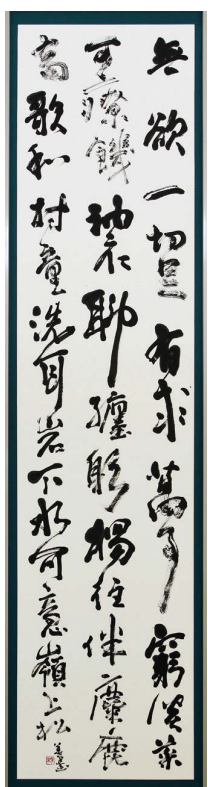 無欲一切足有求萬事窮淡菜
可療饑衲衣聊纏躬獨往伴麋鹿
高歌和村童洗耳岩下水可意嶺上松